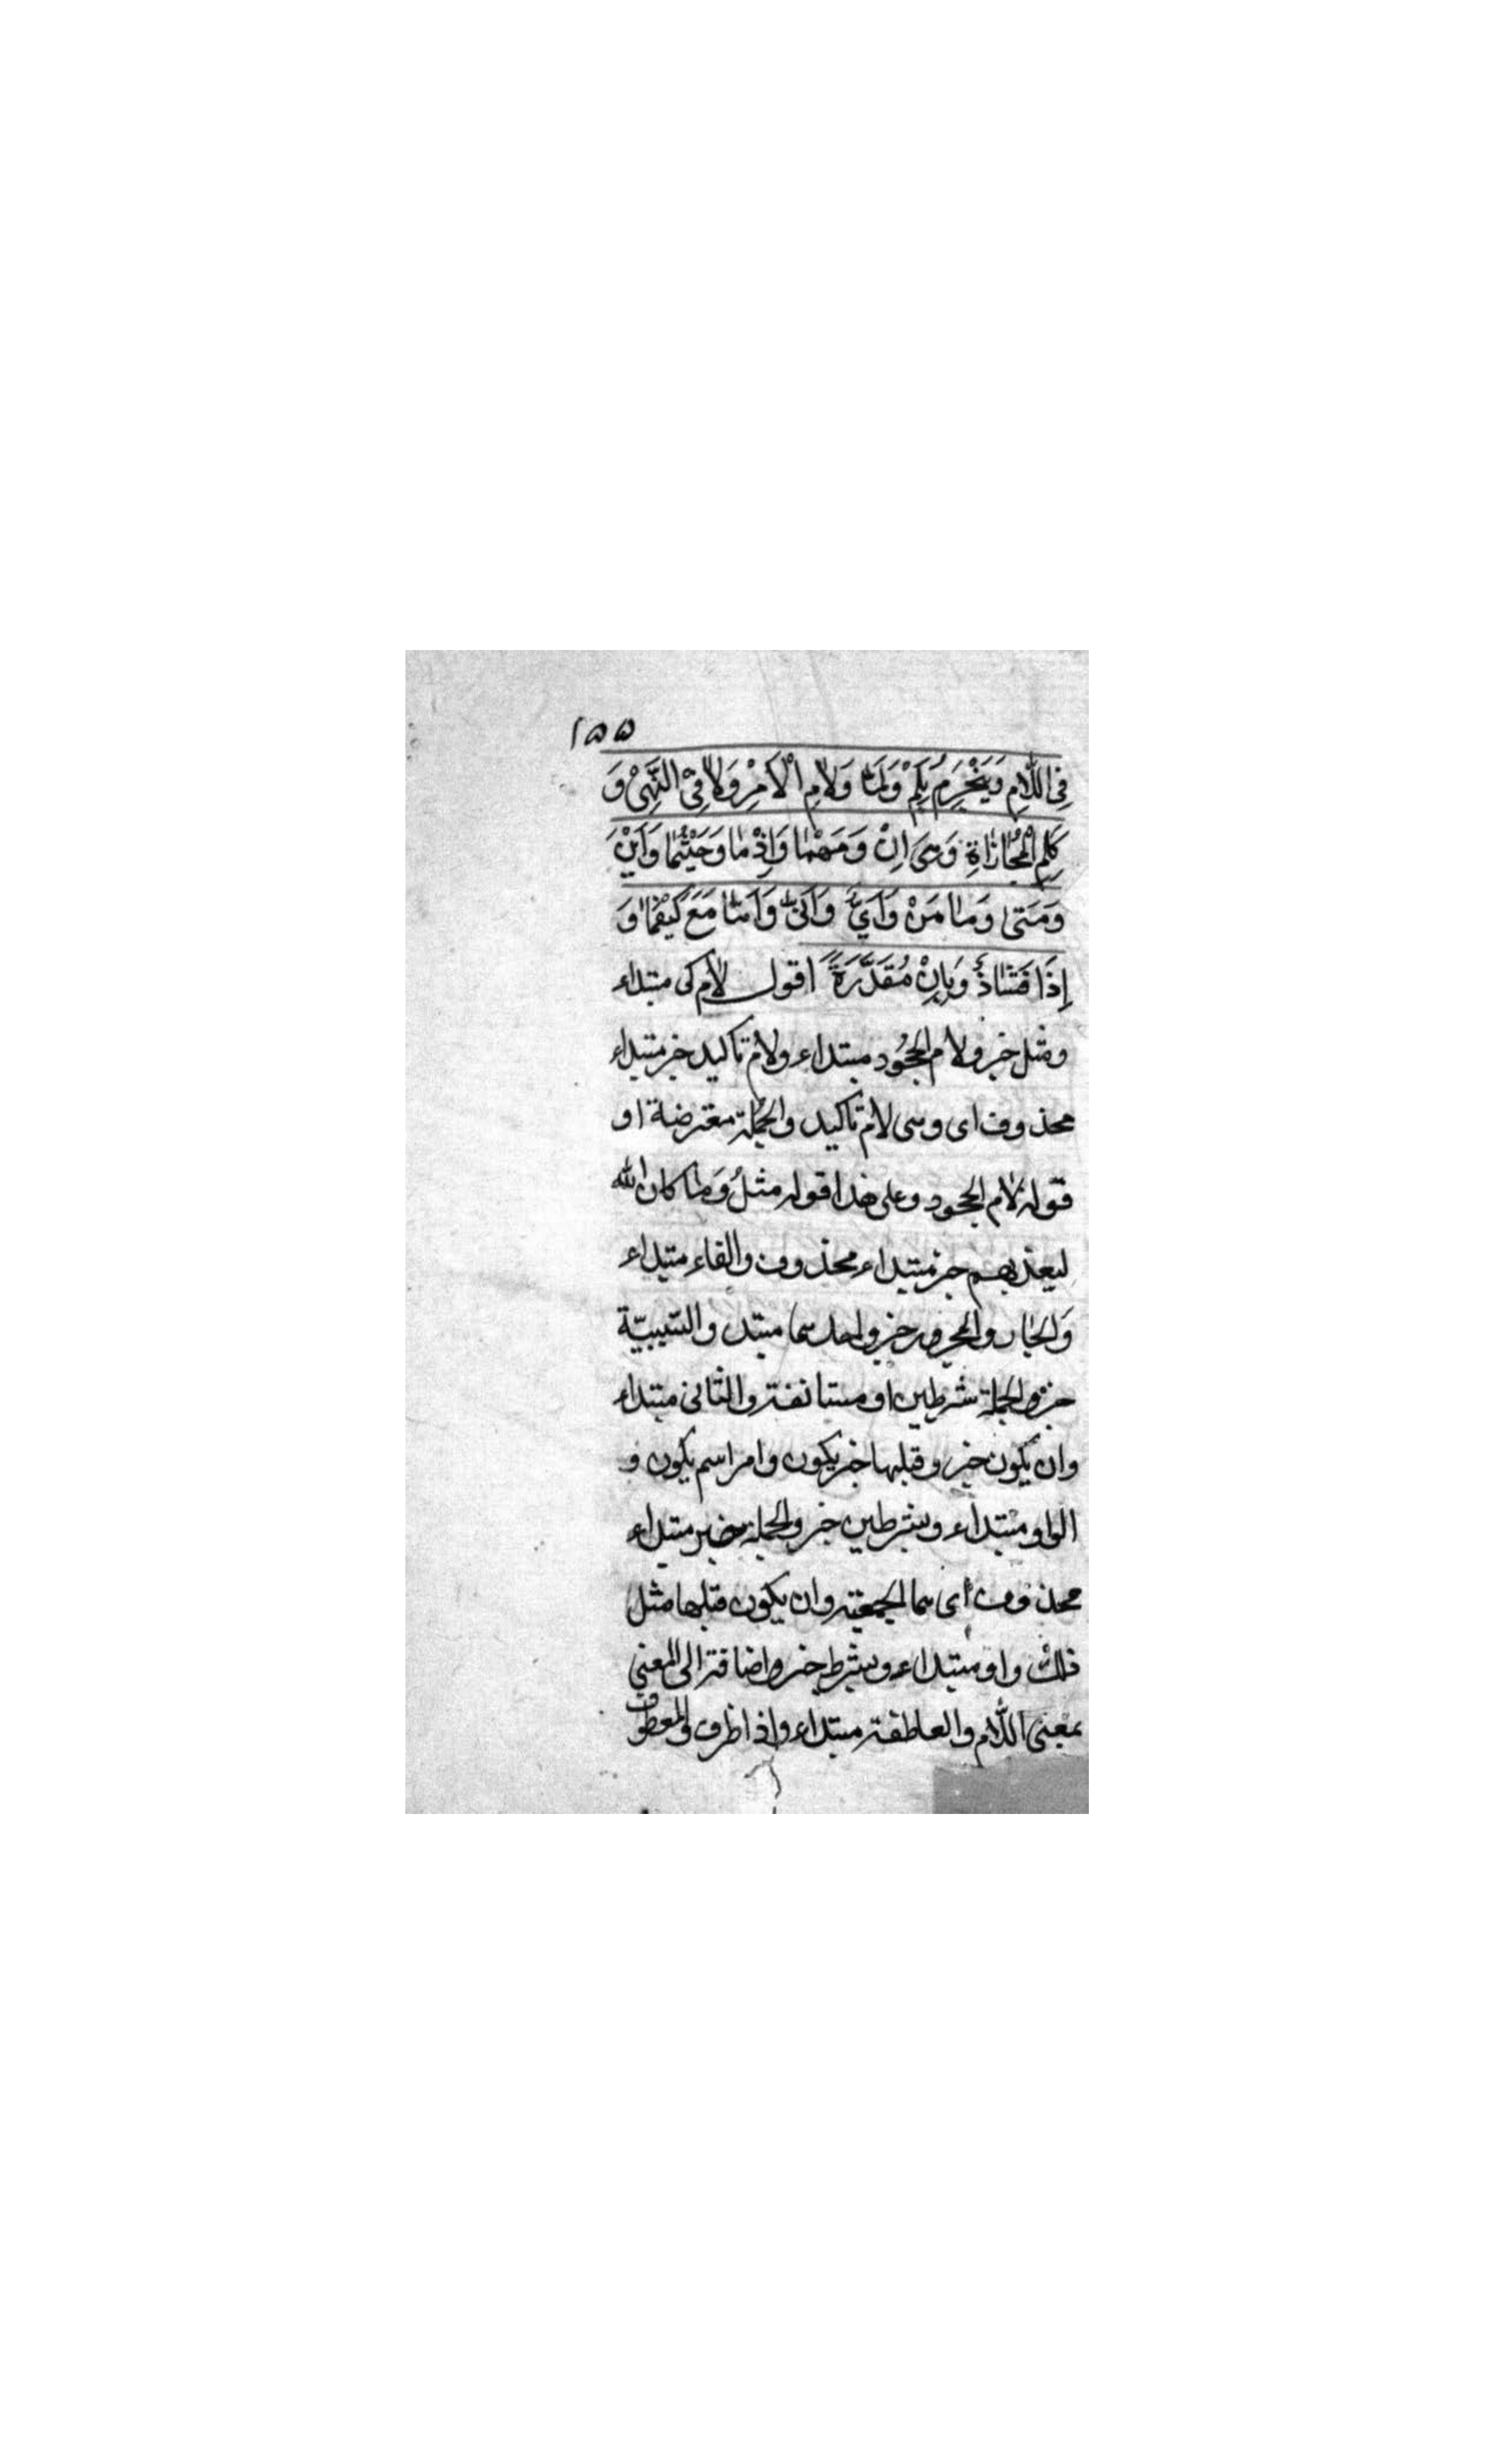 ١٥٥
فِى اللّامِ وَيَنْجَزِمُ بِلَمْ وَلَمَّا وَلامِ الْاَمْرِ وَلا فِىْ النَّهْىِ وَ
كَلِمِ الْمُجازاةِ وَهِىَ اِنْ وَمَهْما وَاِذْما وَحَيْثُما وَاَيْنَ
وَمَتىٰ وَما مَنْ وَاَىُّ وَاَنّى وَاَمّا مَعَ كَيْفَما وَ
اِذَا فَشاذٌّ وَبِاِنْ مُقَدَّرَةً اقول لام كى مبتداء
ومثل خبر ولام الجُحُود مبتداء ولام تاكيد خبر مبتداء
محذوف اى وهى لام تاكيد والجملة معترضة او
قوله لام الجحود وعلى هذا قوله مثلُ وَما كان الله
ليعذبهم خبر مبتداء محذوف والفاء مبتداء
وَالجار والمجرور خبر واحدهما مبتدا والسّببيّة
خبر والجملة شرطين او مستانفة والثانى مبتداء
وان يكون خبر وقبلها خبر يكون وامر اسم يكون و
الواو مبتداء وبشرطين خبر والجملة خبر مبتداء
محذوف اى هما الجمعية وان يكون قبلها مثل
ذلك واو مبتداء وبشرط خبر واضافة الى المعنى
بمعنى اللام والعاطفة مبتداء واذا ظرف والمعطوف